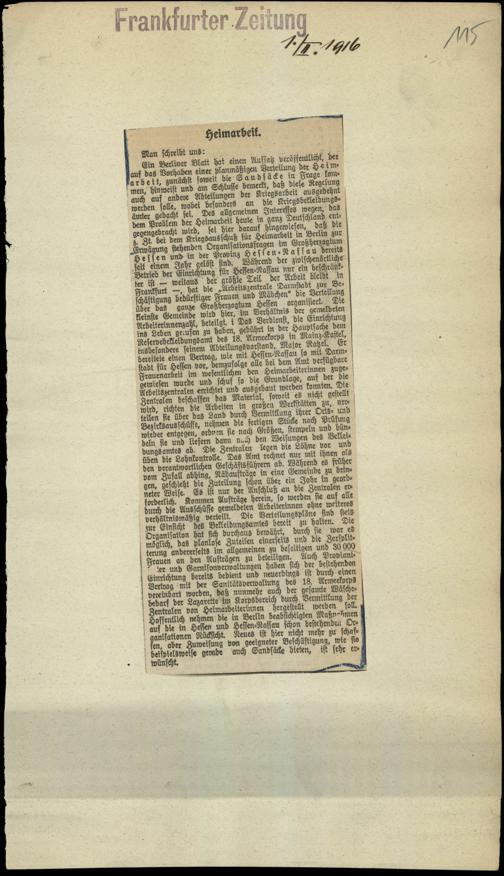 Frankfurter Zeitung
1./II. 1916
115
Heimarbeit.
Man schreibt uns:
Ein Berliner Blatt hat einen Aufsatz veröffentlicht, der
auf das Vorhaben einer planmäßigen Verteilung der Heim-
arbeit, zunächst soweit die Sandsäcke in Frage kom-
men, hinweist und am Schlusse bemerkt, daß diese Regelung
auch auf andere Abteilungen der Kriegsarbeit ausgedehnt
werden solle, wobei besonders an die Kriegsbekleidungs-
ämter gedacht sei. Des allgemeinen Interesses wegen, das
dem Problem der Heimarbeit heute in ganz Deutschland ent-
gegengebracht wird, sei hier darauf hingewiesen, daß die
z. Zt. bei dem Kriegsausschuß für Heimarbeit in Berlin zur
Erwägung stehenden Organisationsfragen im Großherzogtum
Hessen und in der Provinz Hessen-Nassau bereits
seit einem Jahr gelöst sind. Während der zwischenörtliche
Betrieb der Einrichtung für Hessen-Nassau nur ein beschränk-
ter ist — weitaus der größte Teil der Arbeit bleibt in
Frankfurt —, hat die „Arbeitszentrale Darmstadt zur Be-
schäftigung bedürftiger Frauen und Mädchen" die Verteilung
über das ganze Großherzogtum Hessen organisiert. Die
kleinste Gemeinde wird hier, im Verhältnis der gemeldeten
Arbeiterinnenzahl, beteiligt. Das Verdienst, die Einrichtung
ins Leben gerufen zu haben, gebührt in der Hauptsache dem
Reservebekleidungsamt des 18. Armeekorps in Mainz-Kastel,
insbesondere seinem Abteilungsvorstand, Major Ratzel. Er
bereitete einen Vertrag, wie mit Hessen-Nassau so mit Darm-
stadt für Hessen vor, demzufolge alle bei dem Amt verfügbare
Frauenarbeit im wesentlichen den Heimarbeiterinnen zuge-
wiesen wurde und schuf so die Grundlage, auf der die
Arbeitszentralen errichtet und ausgebaut werden konnten. Die
Zentralen beschaffen das Material, soweit es nicht gestellt
wird, richten die Arbeiten in großen Werkstätten zu, ver-
teilen sie über das Land durch Vermittlung ihrer Orts- und
Bezirksausschüsse, nehmen die fertigen Stücke nach Prüfung
wieder entgegen, ordnen sie nach Größen, stempeln und bün-
deln sie und liefern dann nach den Weisungen des Beklei-
dungsamtes ab. Die Zentralen legen die Löhne vor und
üben die Lohnkontrolle. Das Amt rechnet nur mit ihnen als
den verantwortlichen Geschäftsführern ab. Während es früher
vom Zufall abhing, Nähaufträge in eine Gemeinde zu brin-
gen, geschieht die Zuteilung schon über ein Jahr in geord-
neter Weise. Es ist nur der Anschluß an die Zentralen er-
forderlich. Kommen Aufträge herein, so werden sie auf alle
durch die Ausschüsse gemeldeten Arbeiterinnen ohne weiteres
verhältnismäßig verteilt. Die Verteilungspläne sind stets
zur Einsicht des Bekleidungsamtes bereit zu halten. Die
Organisation hat sich durchaus bewährt, durch sie war es
möglich, das planlose Zuteilen einerseits und die Zersplit-
terung andererseits im allgemeinen zu beseitigen und 30 000
Frauen an den Aufträgen zu beteiligen. Auch Proviant-
ter und Garnisonverwaltungen haben sich der bestehenden
Einrichtung bereits bedient und neuerdings ist durch einen
Vertrag mit der Sanitätsverwaltung des 18. Armeekorps
vereinbart worden, daß nunmehr auch der gesamte Wäsche-
bedarf der Lazarette im Korpsbereich durch Vermittlung der
Zentralen von Heimarbeiterinnen hergestellt werden soll.
Hoffentlich nehmen die in Berlin beabsichtigten Maßnahmen
auf die in Hessen und Hessen-Nassau schon bestehenden Or-
ganisationen Rücksicht. Neues ist hier nicht mehr zu schaf-
fen, aber Zuweisung von geeigneter Beschäftigung, wie sie
beispielsweise gerade auch Sandsäcke bieten, ist sehr er-
wünscht.